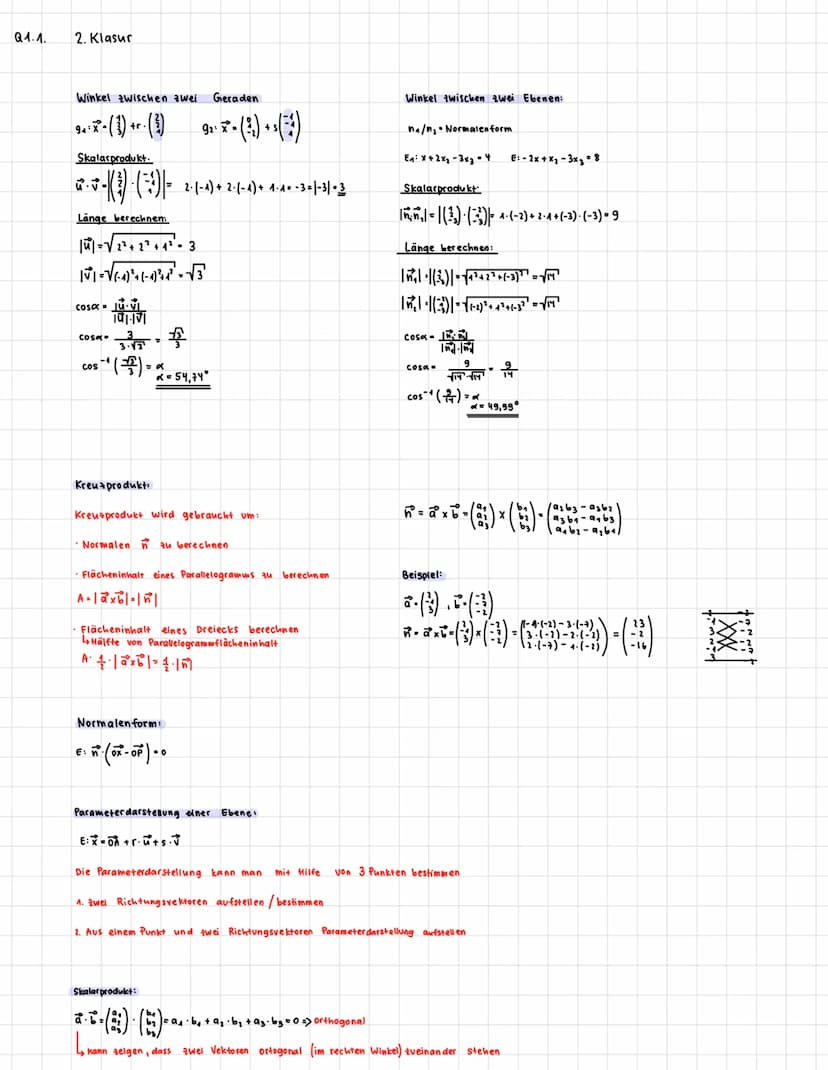 Q1.1. 2. Klasur
Winkel zwischen zwei Geraden
g₁: x⃗ = (1 1 3) + r · (2 2 1) g₂: x⃗ = + s (-1 -1 1)
Skalarprodukt:
u⃗ · v⃗ = |(2 2 1) · (-1 -1 1)| = 2·(-1) + 2·(-1) + 1·1 = -3 = |-3| = 3
Länge berechnen:
|u⃗| = √2² + 2² + 1² = 3
|v⃗| = √(-1)² + (-1)² + 1² = √3
cosα = |u⃗ · v⃗| / |u⃗| · |v⃗|
cosα = 3 / 3·√3 = √3 / 3
cos⁻¹ (√3 / 3) = α
α = 54,74°
Winkel zwischen zwei Ebenen:
n₁/n₂ = Normalenform
E₁: x + 2x₂ - 3x₃ = 4 E: -2x + x₂ - 3x₃ = 8
Skalarprodukt:
|n⃗₁ n⃗₂| = |(1 2 -3) · (-2 1 -3)| = 1·(-2) + 2·1 + (-3)·(-3) = 9
Länge berechnen:
|n⃗₁| = |(1 2 -3)| = √1² + 2² + (-3)² = √14
|n⃗₂| = |(-2 1 -3)| = √(-2)² + 1² + (-3)² = √14
cosα = |n⃗₁ · n⃗₂| / |n⃗₁| · |n⃗₂|
cosα = 9 / √14 · √14 = 9 / 14
cos⁻¹ (9 / 14) = α
α = 49,99°
Kreuzprodukt:
Kreuzprodukt wird gebraucht um:
· Normalen n⃗ zu berechnen
· Flächeninhalt eines Parallelogramms zu berechnen
A = |a⃗ x b⃗| = |n⃗|
· Flächeninhalt eines Dreiecks berechnen
↳ Hälfte von Parallelogrammflächeninhalt
A = 1/2 · |a⃗ x b⃗| = 1/2 · |n⃗|
n⃗ = a⃗ x b⃗ = (a₁ a₂ a₃) x (b₁ b₂ b₃) = (a₂b₃ - a₃b₂ a₃b₁ - a₁b₃ a₁b₂ - a₂b₁)
Beispiel:
a⃗ = (2 -1 3), b⃗ = (-2 -7 -2)
n⃗ = a⃗ x b⃗ = (2 -1 3) x (-2 -7 -2) = (-1·(-2) - 3·(-7) 3·(-2) - 2·(-2) 2·(-7) - 1·(-2)) = (23 -2 -16)
Normalenform:
E: n⃗ · (OX⃗ - OP⃗) = 0
Parameterdarstellung einer Ebene:
E: x⃗ = OA⃗ + r · u⃗ + s · v⃗
Die Parameterdarstellung kann man mit Hilfe von 3 Punkten bestimmen
1. zwei Richtungsvektoren aufstellen / bestimmen
2. Aus einem Punkt und zwei Richtungsvektoren Parameterdarstellung aufstellen
Skalarprodukt:
a⃗ · b⃗ = (a₁ a₂ a₃) · (b₁ b₂ b₃) = a₁ · b₁ + a₂ · b₂ + a₃ · b₃ = 0 => orthogonal
↳ kann zeigen, dass zwei Vektoren ortogonal (im rechten Winkel) zueinander stehen